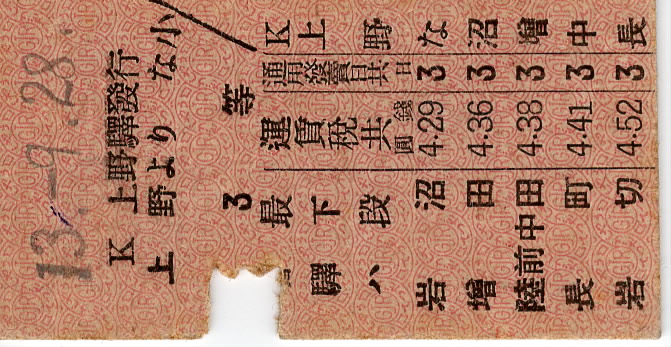 13.-9.28.
K 上野驛發行
上野より な小
3等
最下段
驛ハ
運賃税共 圓錢
通用發賣日共 日
K上野
岩沼 4.29 3 な
増田 4.36 3 沼
陸前中田 4.38 3 増
長町 4.41 3 中
岩切 4.52 3 長